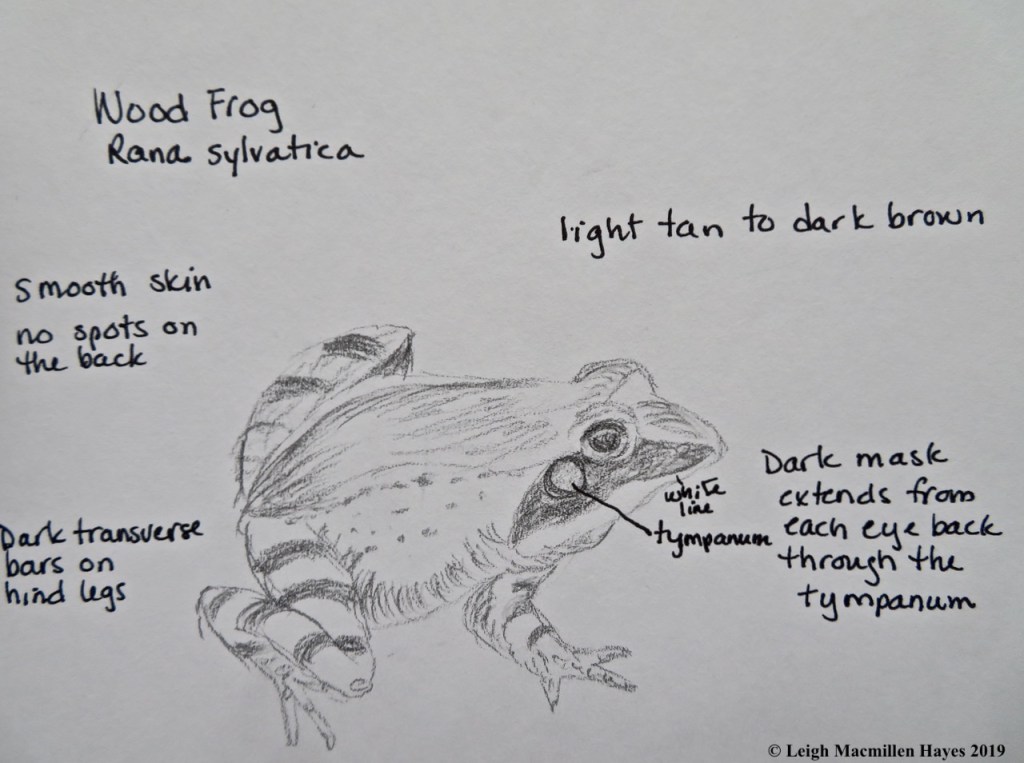 Wood Frog
Rana sylvatica
light tan to dark brown
Smooth skin
no spots on
the back
Dark mask
extends from
each eye back
through the
tympanum
white
line
tympanum
Dark transverse
bars on
hind legs
© Leigh Macmillen Hayes 2019